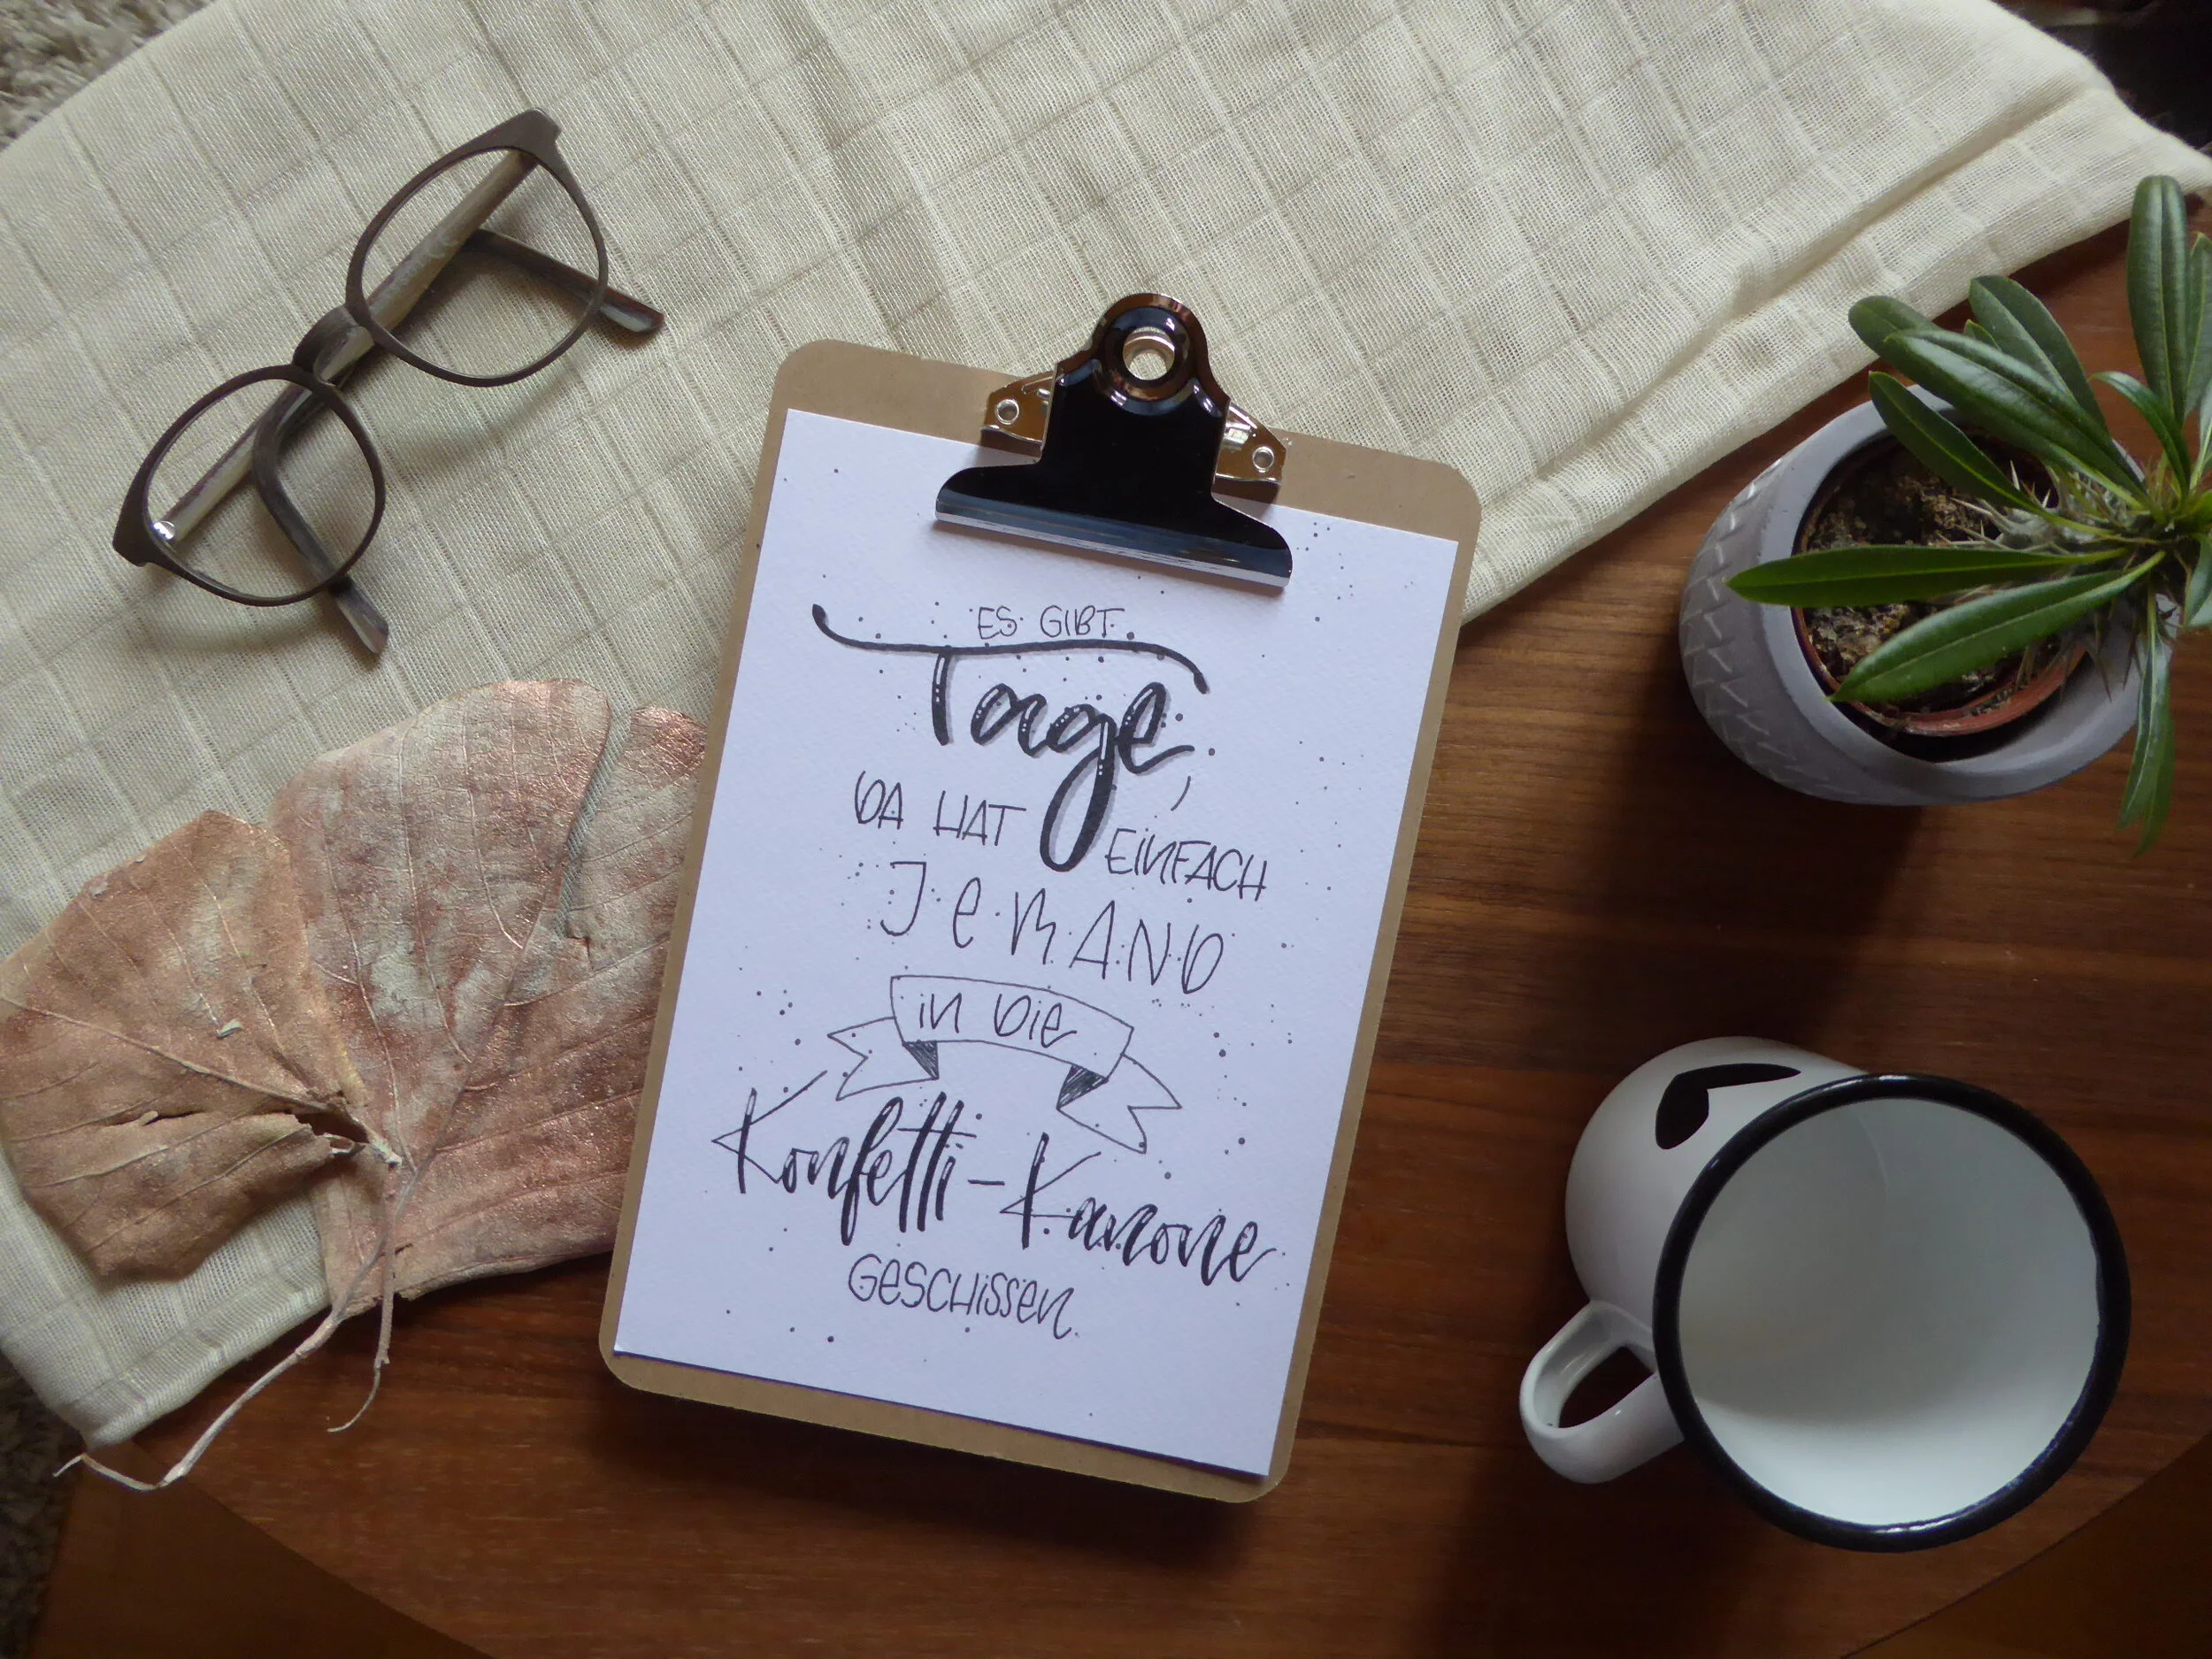 ES GIBT
Tage,
DA HAT EINFACH
JEMAND
in die
Konfetti-Kanone
GESCHISSEN.